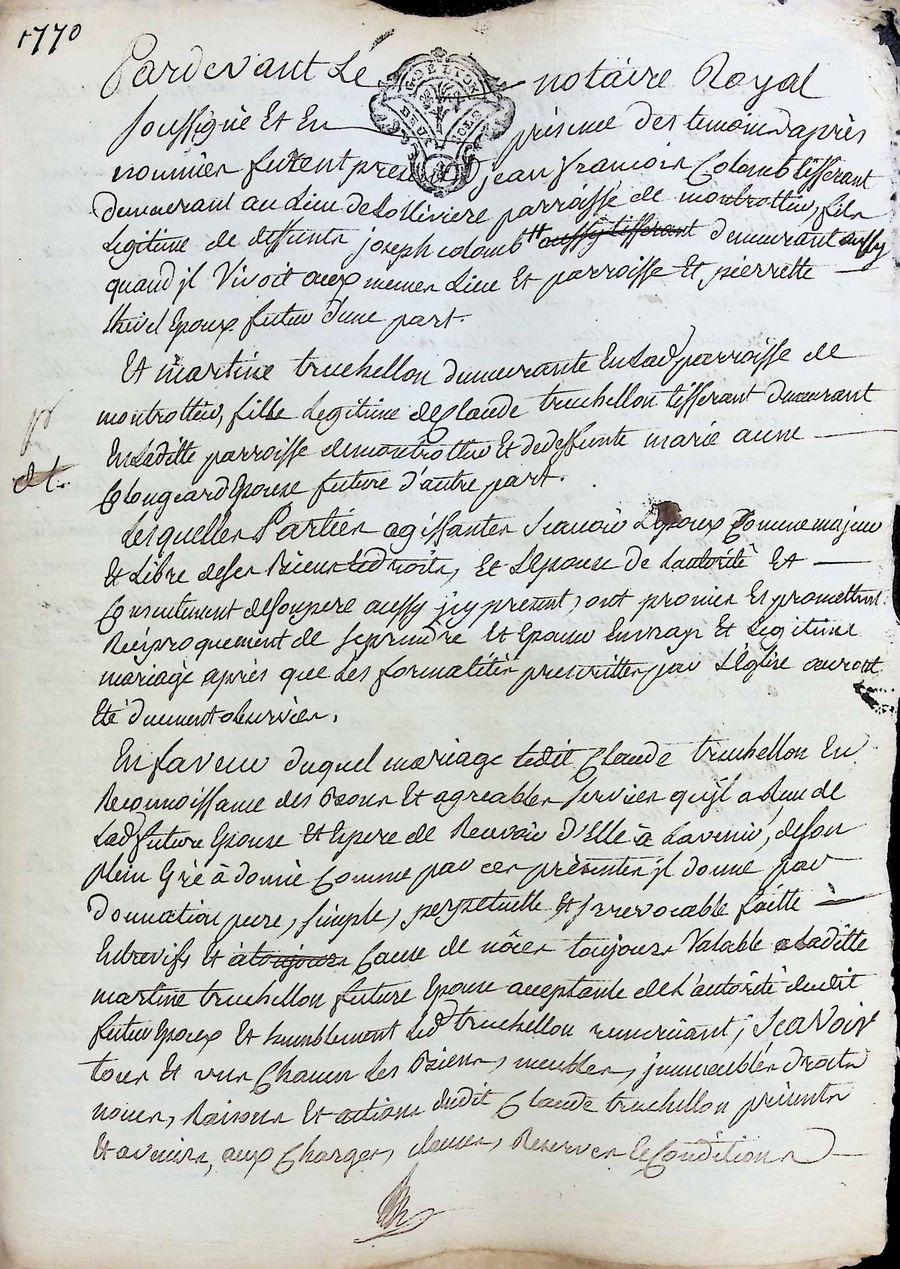 1770
Pardevant Le notaire Royal
soussignè Et En presence des temoins apres
nommés furent presents jean francois Colomb tisserant
demeurant au Lieu de Lolliviere parroisse de montrottier, fils
Legitime de deffunts joseph colomb aussy tisserant demeurant aussy
quand jl Vivoit aux memes Lieu Et parroisse Et pierrette
Epoux futur d'une part.
Et martine truchellon demeurante En Lad parroisse de
montrottier, fille Legitime de Claude truchellon tisserant demeurant
En Laditte parroisse de montrottier Et de deffunte marie anne
Clougeard Epouse future d'autre part.
Lesquelles Parties agissantes scavoir L'Epoux Comme majeur
Et Libre de ses Biens Et droits, Et L'Epouse de L'autorité Et
Consentement de son pere aussy jcy present, ont promis Et promettent
Réciproquement de se prendre Et Epouser En vray Et Legitime
mariage après que Les formalités prescrittes par L'Eglise auront
Eté duement observées.
En faveur duquel mariage Ledit Claude truchellon En
Reconnoissance des Bons Et agreables services qu'jl a Recu de
Lad future Epouse Et Espere de Recevoir d'Elle à Lavenir, de son
plein Gré à donné Comme par ces présentes jl donne par
donnation pure, simple, perpetuelle Et jrrevocable faitte à
Entrevifs Et à toujours Cause de nôces toujours Valable a Laditte
martine truchellon future Epouse acceptante de L'autorité dudit
futur Epoux Et humblement Led truchellon remerciant, scavoir
tous Et uns Chacun Les Biens, meubles, jmmeubles droits
noms, Raisons Et actions dudit Claude truchellon présents
Et avenirs, aux Charges, clauses, Reserves Et Conditions